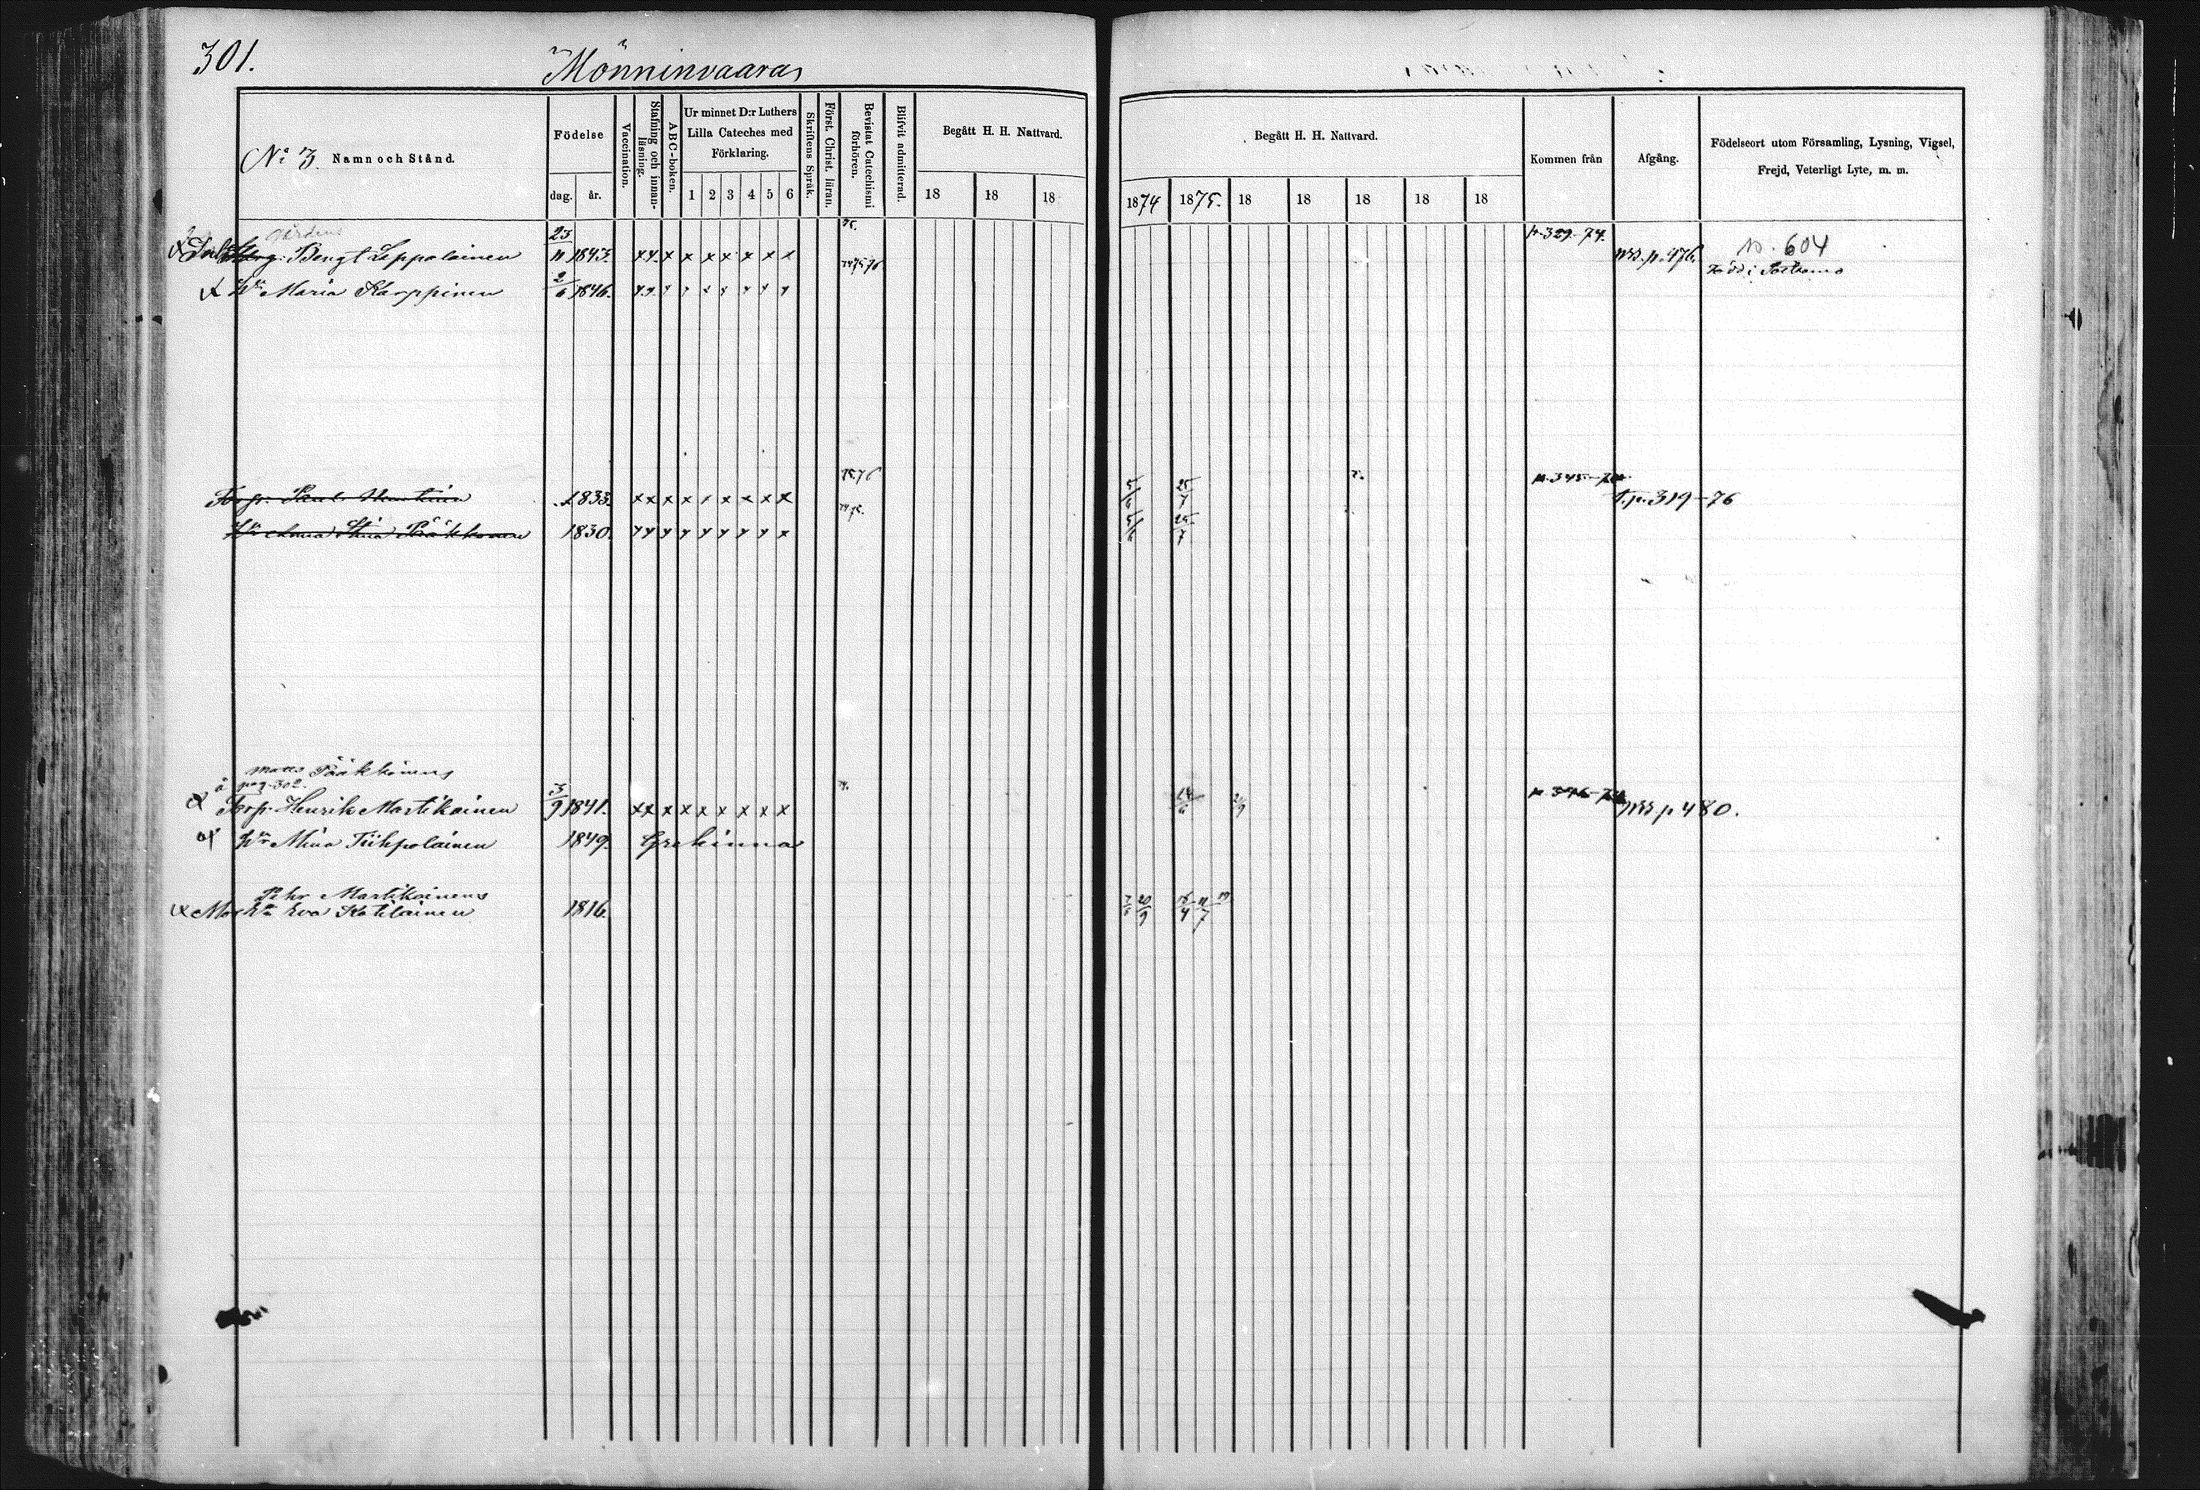 301.
Mönninvaara
N:o 3. Namn och Stånd.
Födelse
dag. år.
Vaccination.
Stafning och innanläsning.
ABC-boken.
Ur minnet D:r Luthers Lilla Cateches med Förklaring.
1 2 3 4 5 6
Skriftens Språk.
Först. Christ. läran.
Bevistat Catechismi förhören.
Blifvit admitterad.
Begått H. H. Nattvard.
18 18 18
Begått H. H. Nattvard.
1874 1875. 18 18 18 18 18
Kommen från
Afgång.
Födelseort utom Församling, Lysning, Vigsel,
Frejd, Veterligt Lyte, m. m.
Gårdens
Bengt Leppolainen 23/11 1843. x x x x x x x x x 75. p. 329-74. p. 476. 604
Född i
Hu Maria Karppinen 2/6 1846. 747576
Torp. Paul 1833. x x x x x x x x x 75.76 25/7 p. 345-74. p. 319-76
Hu Anna Stina Pääkkönen 1830. 74 75. 25/7
Matts Pääkkönens
å pag. 302.
Torp. Henrik Martikainen 3/9 1841. x x x x x x x x x p. 346-74 p 480.
Hu Mina Tiihpolainen 1849. Grekinna
Pehr Martikainens
Eva Kotilainen 1816. 20/9